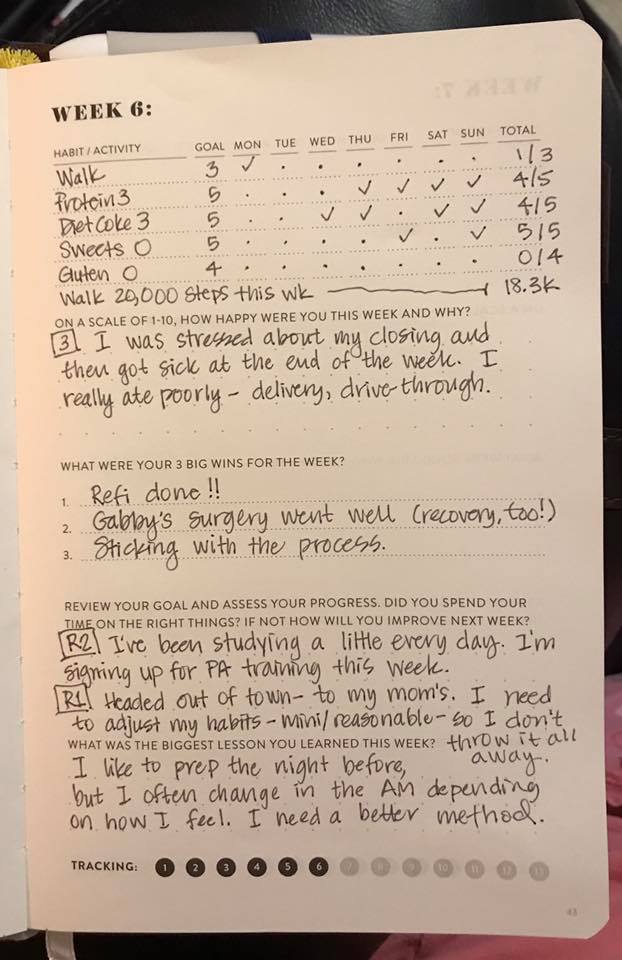 WEEK 6:
HABIT / ACTIVITY GOAL MON TUE WED THU FRI SAT SUN TOTAL
Walk 3 ✓ · · · · · · 1/3
Protein 3 5 · · · ✓ ✓ ✓ ✓ 4/5
Diet Coke 3 5 · · ✓ ✓ · ✓ ✓ 4/5
Sweets 0 5 · · · · ✓ · ✓ 5/5
Gluten 0 4 · · · · · · · 0/4
Walk 20,000 steps this wk 18.3K
ON A SCALE OF 1-10, HOW HAPPY WERE YOU THIS WEEK AND WHY?
3 I was stressed about my closing and
then got sick at the end of the week. I
really ate poorly - delivery, drive-through.
WHAT WERE YOUR 3 BIG WINS FOR THE WEEK?
1. Refi done!!
2. Gabby's surgery went well (recovery, too!)
3. Sticking with the process.
REVIEW YOUR GOAL AND ASSESS YOUR PROGRESS. DID YOU SPEND YOUR
TIME ON THE RIGHT THINGS? IF NOT HOW WILL YOU IMPROVE NEXT WEEK?
R2 I've been studying a little every day. I'm
signing up for PA training this week.
R1 Headed out of town - to my mom's. I need
to adjust my habits - mini/reasonable - so I don't
throw it all
away.
WHAT WAS THE BIGGEST LESSON YOU LEARNED THIS WEEK?
I like to prep the night before,
but I often change in the AM depending
on how I feel. I need a better method.
TRACKING: 1 2 3 4 5 6 7 8 9 10 11 12 13
43
WEEK 7: